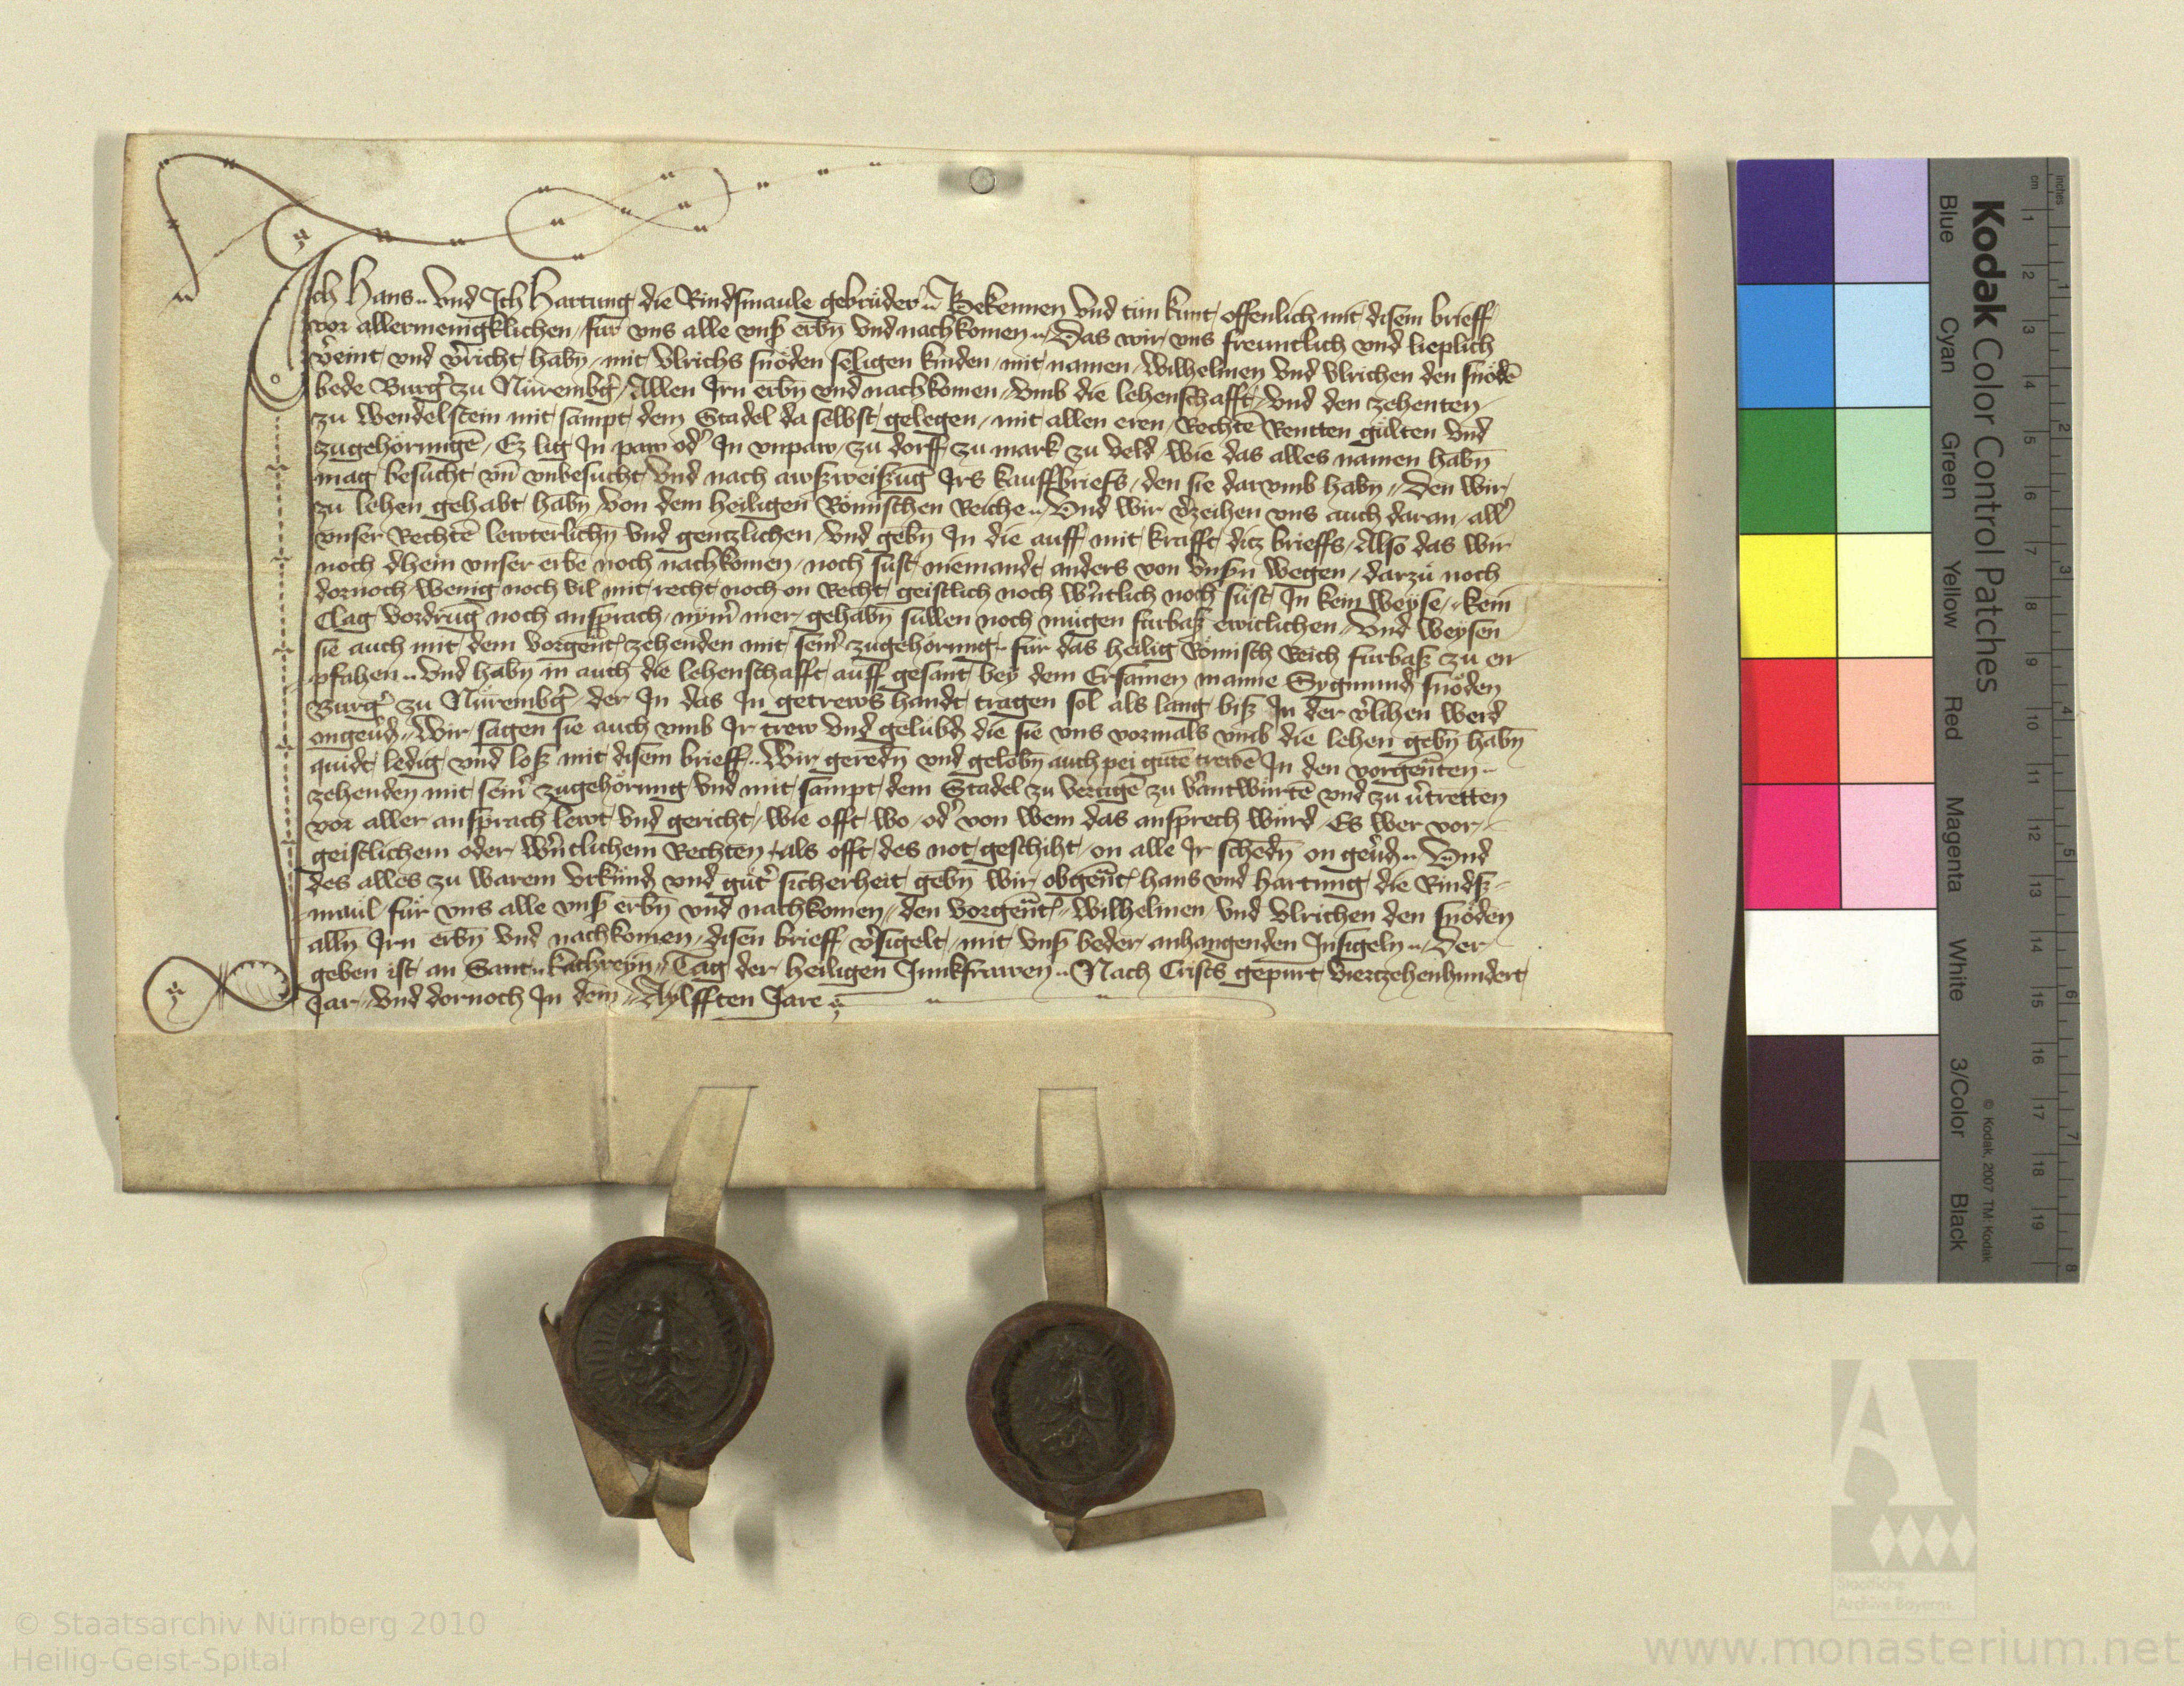 Ich Hans und Ich Hartung die Rindsmaule gebrüder Bekennen und tün kunt offenlich mit disem brieff
vor allermenigklichen für uns alle unsʼ erbn̄ und nachkomen Das wir uns freuntlich und lieplich
vʼeint und vʼricht habn̄ mit Ulrichs snöden seligen kinden mit namen Wilhelmen und Ulrichen den snödē
bede Burgʼ zu Nürembgʼ Allen Irn erbn̄ und nachkomen umb die lehenschafft und den zehenten
zu Wendelstein mit sampt dem Stadel da selbst gelegen mit allen eren Rechtē Rentten gülten und
zugehörungē Ez lig In paw odʼ In unpaw zu dorff zu mark zu veld wie das alles namen habn̄
mag besucht un̄ unbesucht und nach awszweiszūg Irs kauffbriefs den sie darumb habn̄ Den wir
zu lehen gehabt habn̄ von dem heiligen Römischen Reiche Und wir vʼzeihen uns auch daran allʼ
unser Rechtē lewterlichn̄ und gentzlichen und gebn̄ In die auff mit krafft ditz brieffs Also das wir
noch dhein unser erbē noch nachkomen noch süst niemandt anders von unsʼn wegen darzü noch
dornoch wenig noch vil mit recht noch on Recht geistlich noch wʼntlich noch süst In kein weyse kein
Clag vordrūg noch ansprach nymʼ mer gehabn̄ süllen noch mügen fürbasz ewiclichen Und weysen
sie auch mit dem vorgent̄ zehenden mit seinʼ zugehörung für das heilig Römisch Reich fürbasz zu en
pfahen Und habn̄ in auch die lehenschafft auff gesant bey dem Ersamen manne Sygmund snöden
Burgʼ zu Nürembgʼ der In das In getrews handt tragen sol als lang bisz In der vʼlihen werd
ongevʼd Wir sagen sie auch umb Ir trew und gelübd die sie uns vormals umb die lehen gebn̄ habn̄
quidt ledig und losz mit disem brieff Wir geredn̄ und gelobn̄ auch pei gutē trewē In den vorgenn̄ten
zehenden mit seinʼ zugehörung und mit sampt dem Stadel zu vertigē zu vʼantwürtē und zu vʼtretten
vor aller ansprach lewt und gericht wie offt wo odʼ von wem das ansprech würd Es wer vor
geistlichem oder wʼntlichem Rechten als offt des not geschiht on alle Ir schedn̄ on gevʼd Und
des alles zu warem urkünd und gütʼ sicherheit gebn̄ wir obgent̄ hans und hartung die Rindsz
maul für uns alle unsʼ erbn̄ und nachkomen den vorgent̄ Wilhelmen und Ulrichen den snöden
alln̄ Irn erbn̄ und nachkomen disen brieff vʼsigelt mit unsʼ beder anhangenden Insigeln Der
geben ist an Sant kathreyn Tag der heiligen Junkfrawen Nach Crists gepurt vierzehenhundert
Jar und dornoch In dem Aylfften Jare
Kodak Color Control Patches
Blue Cyan Green Yellow Red Magenta White 3/Color Black
© Kodak, 2007 TM: Kodak
cm 1 2 3 4 5 6 7 8 9 10 11 12 13 14 15 16 17 18 19
inches 1 2 3 4 5 6 7 8
Staatliche
Archive Bayerns
© Staatsarchiv Nürnberg 2010
Heilig-Geist-Spital
www.monasterium.net